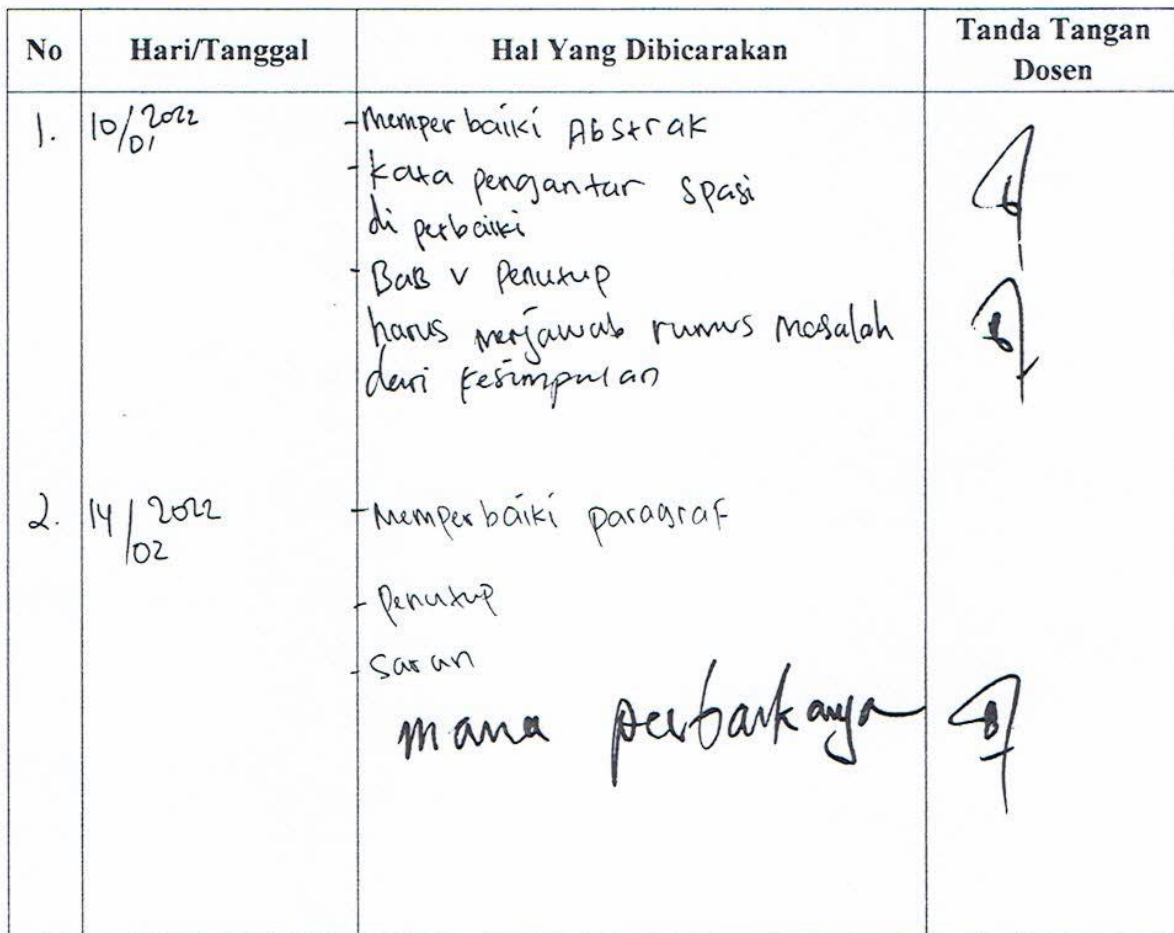 No Hari/Tanggal Hal Yang Dibicarakan Tanda Tangan Dosen
1. 10/01 2022 - Memperbaiki Abstrak
- kata pengantar spasi
di perbaiki
- Bab V Penutup
harus menjawab rumus masalah
dari kesimpulan
2. 14/02 2022 - Memperbaiki paragraf
- Penutup
- saran
mana perbaikanya